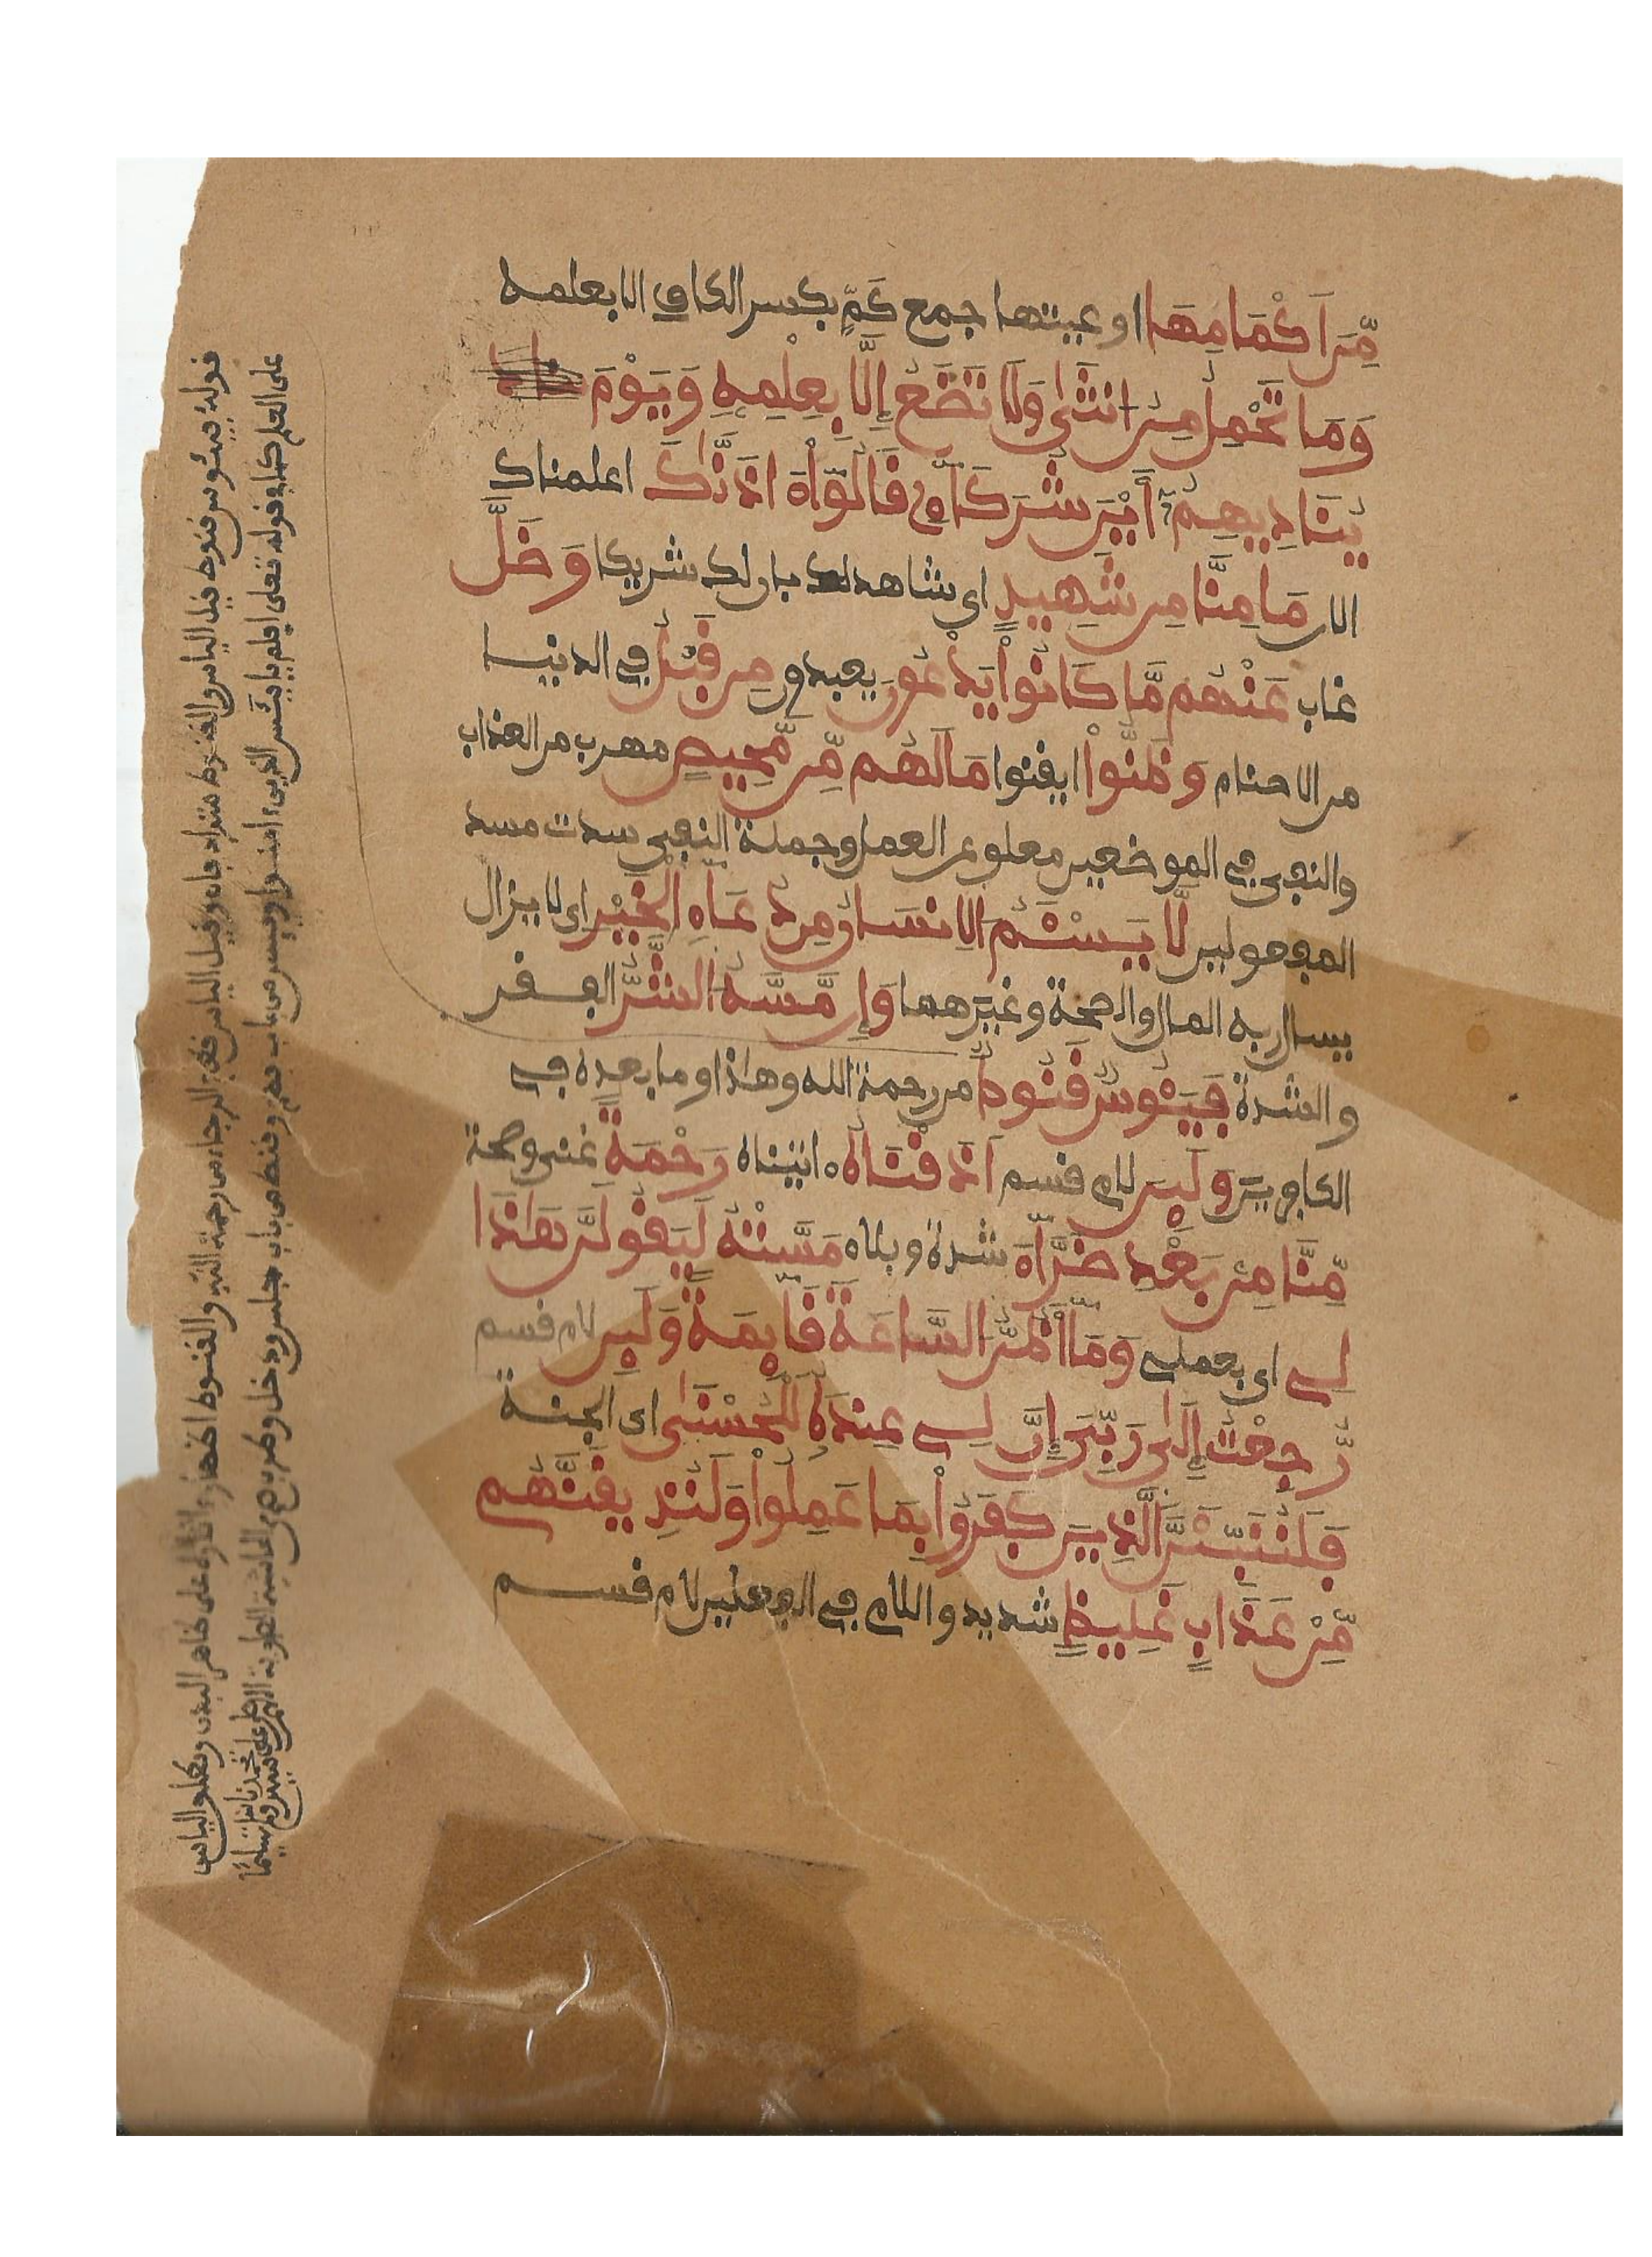 مِّنَ اَكْمَامِهَا اوعيتها جمع كِمّ بكسر الكاف الا بعلمه
وَمَا تَحْمِلُ مِنُ انثَىٰ وَلَا تَضَعُ إِلَّا بِعِلْمِهِ وَيَوْمَ
يُنَادِيهِمُ أَيْنَ شُرَكَآءِي قَالُوٓاْ ءَاذَنَّٰكَ اعلمناك
الان مَا مِنَّا مِن شَهِيدٍ اى شاهد لك بان لك شريكا وَضَلَّ
غاب عَنْهُم مَّا كَانُواْ يَدْعُونَ يعبدون مِن قَبْلُ في الدنيا
من الاصنام وَظَنُّواْ ايقنوا مَا لَهُم مِّن مَّحِيصٍ مهرب من العذاب
والنفى في الموضعين معلق عن العمل وجملة النفى سدت مسد
المفعولين لَّا يَسْـَٔمُ الِانسَانُ مِن دُعَآءِ الْخَيْرِ اى لا يزال
يسال ربه المال والصحة وغيرهما وَإِن مَّسَّهُ الشَّرُّ الفقر
والشدة فَيَـُٔوسٌ قَنُوطٌ من رحمة الله وهذا وما بعده في
الكافرين وَلَئِنَ لام قسم اَذَقْنَاهُ ءاتيناه رَحْمَةً غنى وصحة
مِّنَّا مِنۢ بَعْدِ ضَرَّآءَ شدة وبلاء مَسَّتْهُ لَيَقُولَنَّ هَٰذَا
لِے اى بعملے وَمَآ أَظُنُّ السَّاعَةَ قَآئِمَةً وَلَئِن لام قسم
رُّجِعْتُ إِلَىٰ رَبِّيَ إِنَّ لِے عِندَهُۥ لَلْحُسْنَىٰ اى الجنة
فَلَنُنَبِّئَنَّ الَّذِينَ كَفَرُواْ بِمَا عَمِلُواْ وَلَنُذِيقَنَّهُم
مِّنْ عَذَابٍ غَلِيظٍ شديد واللام في الفعلين لام قسم
قوله فيئوس قنوط قيل الياس والقنوط مترادفان وقيل الياس قطع الرجاء من رحمة الله والقنوط اظهار اثاره على ظاهر البدن ويطلق الياس
على العلم كما في قوله تعالى افلم يايئس الذين ءامنوا